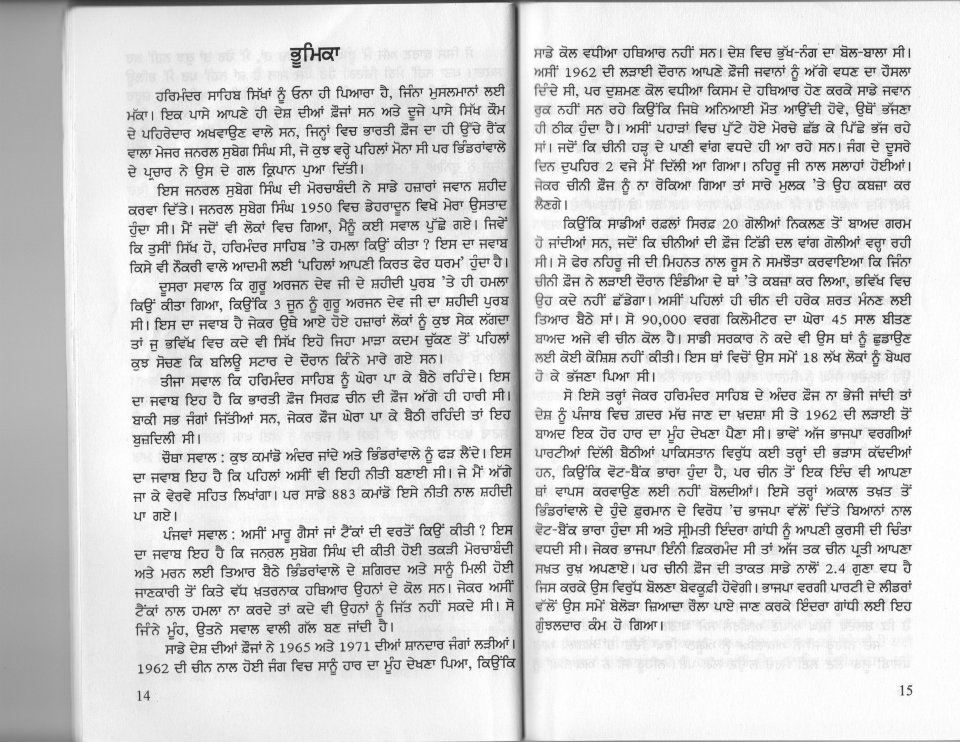 ਭੂਮਿਕਾ
ਹਰਿਮੰਦਰ ਸਾਹਿਬ ਸਿੱਖਾਂ ਨੂੰ ਓਨਾ ਹੀ ਪਿਆਰਾ ਹੈ, ਜਿੰਨਾ ਮੁਸਲਮਾਨਾਂ ਲਈ
ਮੱਕਾ। ਇਕ ਪਾਸੇ ਆਪਣੇ ਹੀ ਦੇਸ਼ ਦੀਆਂ ਫ਼ੌਜਾਂ ਸਨ ਅਤੇ ਦੂਜੇ ਪਾਸੇ ਸਿੱਖ ਕੌਮ
ਦੇ ਪਹਿਰੇਦਾਰ ਅਖਵਾਉਣ ਵਾਲੇ ਸਨ, ਜਿਨ੍ਹਾਂ ਵਿਚ ਭਾਰਤੀ ਫ਼ੌਜ ਦਾ ਹੀ ਉੱਚੇ ਰੈਂਕ
ਵਾਲਾ ਮੇਜਰ ਜਨਰਲ ਸੁਬੇਗ ਸਿੰਘ ਸੀ, ਜੋ ਕੁਝ ਵਰ੍ਹੇ ਪਹਿਲਾਂ ਮੋਨਾ ਸੀ ਪਰ ਭਿੰਡਰਾਂਵਾਲੇ
ਦੇ ਪ੍ਰਚਾਰ ਨੇ ਉਸ ਦੇ ਗਲ ਕ੍ਰਿਪਾਨ ਪੁਆ ਦਿੱਤੀ।
ਇਸ ਜਨਰਲ ਸੁਬੇਗ ਸਿੰਘ ਦੀ ਮੋਰਚਾਬੰਦੀ ਨੇ ਸਾਡੇ ਹਜ਼ਾਰਾਂ ਜਵਾਨ ਸ਼ਹੀਦ
ਕਰਵਾ ਦਿੱਤੇ। ਜਨਰਲ ਸੁਬੇਗ ਸਿੰਘ 1950 ਵਿਚ ਡੇਹਰਾਦੂਨ ਵਿਖੇ ਮੇਰਾ ਉਸਤਾਦ
ਹੁੰਦਾ ਸੀ। ਮੈਂ ਜਦੋਂ ਵੀ ਲੋਕਾਂ ਵਿਚ ਗਿਆ, ਮੈਨੂੰ ਕਈ ਸਵਾਲ ਪੁੱਛੇ ਗਏ। ਜਿਵੇਂ
ਕਿ ਤੁਸੀਂ ਸਿੱਖ ਹੋ, ਹਰਿਮੰਦਰ ਸਾਹਿਬ 'ਤੇ ਹਮਲਾ ਕਿਉਂ ਕੀਤਾ ? ਇਸ ਦਾ ਜਵਾਬ
ਕਿਸੇ ਵੀ ਨੌਕਰੀ ਵਾਲੇ ਆਦਮੀ ਲਈ 'ਪਹਿਲਾਂ ਆਪਣੀ ਕਿਰਤ ਫੇਰ ਧਰਮ' ਹੁੰਦਾ ਹੈ।
ਦੂਸਰਾ ਸਵਾਲ ਕਿ ਗੁਰੂ ਅਰਜਨ ਦੇਵ ਜੀ ਦੇ ਸ਼ਹੀਦੀ ਪੁਰਬ 'ਤੇ ਹੀ ਹਮਲਾ
ਕਿਉਂ ਕੀਤਾ ਗਿਆ, ਕਿਉਂਕਿ 3 ਜੂਨ ਨੂੰ ਗੁਰੂ ਅਰਜਨ ਦੇਵ ਜੀ ਦਾ ਸ਼ਹੀਦੀ ਪੁਰਬ
ਸੀ। ਇਸ ਦਾ ਜਵਾਬ ਹੈ ਜੇਕਰ ਉਥੇ ਆਏ ਹੋਏ ਹਜ਼ਾਰਾਂ ਲੋਕਾਂ ਨੂੰ ਕੁਝ ਸੇਕ ਲੱਗਦਾ
ਤਾਂ ਜੁ ਭਵਿੱਖ ਵਿਚ ਕਦੇ ਵੀ ਸਿੱਖ ਇਹੋ ਜਿਹਾ ਮਾੜਾ ਕਦਮ ਚੁੱਕਣ ਤੋਂ ਪਹਿਲਾਂ
ਕੁਝ ਸੋਚਣ ਕਿ ਬਲਿਊ ਸਟਾਰ ਦੇ ਦੌਰਾਨ ਕਿੰਨੇ ਮਾਰੇ ਗਏ ਸਨ।
ਤੀਜਾ ਸਵਾਲ ਕਿ ਹਰਿਮੰਦਰ ਸਾਹਿਬ ਨੂੰ ਘੇਰਾ ਪਾ ਕੇ ਬੈਠੇ ਰਹਿੰਦੇ। ਇਸ
ਦਾ ਜਵਾਬ ਇਹ ਹੈ ਕਿ ਭਾਰਤੀ ਫ਼ੌਜ ਸਿਰਫ਼ ਚੀਨ ਦੀ ਫ਼ੌਜ ਅੱਗੇ ਹੀ ਹਾਰੀ ਸੀ।
ਬਾਕੀ ਸਭ ਜੰਗਾਂ ਜਿੱਤੀਆਂ ਸਨ, ਜੇਕਰ ਫ਼ੌਜ ਘੇਰਾ ਪਾ ਕੇ ਬੈਠੀ ਰਹਿੰਦੀ ਤਾਂ ਇਹ
ਬੁਜ਼ਦਿਲੀ ਸੀ।
ਚੌਥਾ ਸਵਾਲ : ਕੁਝ ਕਮਾਂਡੋ ਅੰਦਰ ਜਾਂਦੇ ਅਤੇ ਭਿੰਡਰਾਂਵਾਲੇ ਨੂੰ ਫੜ ਲੈਂਦੇ। ਇਸ
ਦਾ ਜਵਾਬ ਇਹ ਹੈ ਕਿ ਪਹਿਲਾਂ ਅਸੀਂ ਵੀ ਇਹੀ ਨੀਤੀ ਬਣਾਈ ਸੀ। ਜੇ ਮੈਂ ਅੱਗੇ
ਜਾ ਕੇ ਵੇਰਵੇ ਸਹਿਤ ਲਿਖਾਂਗਾ। ਪਰ ਸਾਡੇ 883 ਕਮਾਂਡੋ ਇਸੇ ਨੀਤੀ ਨਾਲ ਸ਼ਹੀਦੀ
ਪਾ ਗਏ।
ਪੰਜਵਾਂ ਸਵਾਲ : ਅਸੀਂ ਮਾਰੂ ਗੈਸਾਂ ਜਾਂ ਟੈਂਕਾਂ ਦੀ ਵਰਤੋਂ ਕਿਉਂ ਕੀਤੀ ? ਇਸ
ਦਾ ਜਵਾਬ ਇਹ ਹੈ ਕਿ ਜਨਰਲ ਸੁਬੇਗ ਸਿੰਘ ਦੀ ਕੀਤੀ ਹੋਈ ਤਕੜੀ ਮੋਰਚਾਬੰਦੀ
ਅਤੇ ਮਰਨ ਲਈ ਤਿਆਰ ਬੈਠੇ ਭਿੰਡਰਾਂਵਾਲੇ ਦੇ ਸ਼ਗਿਰਦ ਅਤੇ ਸਾਨੂੰ ਮਿਲੀ ਹੋਈ
ਜਾਣਕਾਰੀ ਤੋਂ ਕਿਤੇ ਵੱਧ ਖ਼ਤਰਨਾਕ ਹਥਿਆਰ ਉਹਨਾਂ ਦੇ ਕੋਲ ਸਨ। ਜੇਕਰ ਅਸੀਂ
ਟੈਂਕਾਂ ਨਾਲ ਹਮਲਾ ਨਾ ਕਰਦੇ ਤਾਂ ਕਦੇ ਵੀ ਉਹਨਾਂ ਨੂੰ ਜਿੱਤ ਨਹੀਂ ਸਕਦੇ ਸੀ। ਸੋ
ਜਿੰਨੇ ਮੂੰਹ, ਉਤਨੇ ਸਵਾਲ ਵਾਲੀ ਗੱਲ ਬਣ ਜਾਂਦੀ ਹੈ।
ਸਾਡੇ ਦੇਸ਼ ਦੀਆਂ ਫ਼ੌਜਾਂ ਨੇ 1965 ਅਤੇ 1971 ਦੀਆਂ ਸ਼ਾਨਦਾਰ ਜੰਗਾਂ ਲੜੀਆਂ।
1962 ਦੀ ਚੀਨ ਨਾਲ ਹੋਈ ਜੰਗ ਵਿਚ ਸਾਨੂੰ ਹਾਰ ਦਾ ਮੂੰਹ ਦੇਖਣਾ ਪਿਆ, ਕਿਉਂਕਿ
14
ਸਾਡੇ ਕੋਲ ਵਧੀਆ ਹਥਿਆਰ ਨਹੀਂ ਸਨ। ਦੇਸ਼ ਵਿਚ ਭੁੱਖ-ਨੰਗ ਦਾ ਬੋਲ-ਬਾਲਾ ਸੀ।
ਅਸੀਂ 1962 ਦੀ ਲੜਾਈ ਦੌਰਾਨ ਆਪਣੇ ਫ਼ੌਜੀ ਜਵਾਨਾਂ ਨੂੰ ਅੱਗੇ ਵਧਣ ਦਾ ਹੌਸਲਾ
ਦਿੰਦੇ ਸੀ, ਪਰ ਦੁਸ਼ਮਣ ਕੋਲ ਵਧੀਆ ਕਿਸਮ ਦੇ ਹਥਿਆਰ ਹੋਣ ਕਰਕੇ ਸਾਡੇ ਜਵਾਨ
ਰੁਕ ਨਹੀਂ ਸਨ ਰਹੇ ਕਿਉਂਕਿ ਜਿਥੇ ਅਨਿਆਈ ਮੌਤ ਆਉਂਦੀ ਹੋਵੇ, ਉਥੋਂ ਭੱਜਣਾ
ਹੀ ਠੀਕ ਹੁੰਦਾ ਹੈ। ਅਸੀਂ ਪਹਾੜਾਂ ਵਿਚ ਪੁੱਟੇ ਹੋਏ ਮੋਰਚੇ ਛੱਡ ਕੇ ਪਿੱਛੇ ਭੱਜ ਰਹੇ
ਸਾਂ। ਜਦੋਂ ਕਿ ਚੀਨੀ ਹੜ੍ਹ ਦੇ ਪਾਣੀ ਵਾਂਗ ਵਧਦੇ ਹੀ ਆ ਰਹੇ ਸਨ। ਜੰਗ ਦੇ ਦੂਸਰੇ
ਦਿਨ ਦੁਪਹਿਰ 2 ਵਜੇ ਮੈਂ ਦਿੱਲੀ ਆ ਗਿਆ। ਨਹਿਰੂ ਜੀ ਨਾਲ ਸਲਾਹਾਂ ਹੋਈਆਂ।
ਜੇਕਰ ਚੀਨੀ ਫ਼ੌਜ ਨੂੰ ਨਾ ਰੋਕਿਆ ਗਿਆ ਤਾਂ ਸਾਰੇ ਮੁਲਕ 'ਤੇ ਉਹ ਕਬਜ਼ਾ ਕਰ
ਲੈਣਗੇ।
ਕਿਉਂਕਿ ਸਾਡੀਆਂ ਰਫ਼ਲਾਂ ਸਿਰਫ਼ 20 ਗੋਲੀਆਂ ਨਿਕਲਣ ਤੋਂ ਬਾਅਦ ਗਰਮ
ਹੋ ਜਾਂਦੀਆਂ ਸਨ, ਜਦੋਂ ਕਿ ਚੀਨੀਆਂ ਦੀ ਫ਼ੌਜ ਟਿੱਡੀ ਦਲ ਵਾਂਗ ਗੋਲੀਆਂ ਵਰ੍ਹਾ ਰਹੀ
ਸੀ। ਸੋ ਫੇਰ ਨਹਿਰੂ ਜੀ ਦੀ ਮਿਹਨਤ ਨਾਲ ਰੂਸ ਨੇ ਸਮਝੌਤਾ ਕਰਵਾਇਆ ਕਿ ਜਿੰਨਾ
ਚੀਨੀ ਫ਼ੌਜ ਨੇ ਲੜਾਈ ਦੌਰਾਨ ਇੰਡੀਆ ਦੇ ਥਾਂ 'ਤੇ ਕਬਜ਼ਾ ਕਰ ਲਿਆ, ਭਵਿੱਖ ਵਿਚ
ਉਹ ਕਦੇ ਨਹੀਂ ਛੱਡੇਗਾ। ਅਸੀਂ ਪਹਿਲਾਂ ਹੀ ਚੀਨ ਦੀ ਹਰੇਕ ਸ਼ਰਤ ਮੰਨਣ ਲਈ
ਤਿਆਰ ਬੈਠੇ ਸਾਂ। ਸੋ 90,000 ਵਰਗ ਕਿਲੋਮੀਟਰ ਦਾ ਘੇਰਾ 45 ਸਾਲ ਬੀਤਣ
ਬਾਅਦ ਅਜੇ ਵੀ ਚੀਨ ਕੋਲ ਹੈ। ਸਾਡੀ ਸਰਕਾਰ ਨੇ ਕਦੇ ਵੀ ਉਸ ਥਾਂ ਨੂੰ ਛੁਡਾਉਣ
ਲਈ ਕੋਈ ਕੋਸ਼ਿਸ਼ ਨਹੀਂ ਕੀਤੀ। ਇਸ ਥਾਂ ਵਿਚੋਂ ਉਸ ਸਮੇਂ 18 ਲੱਖ ਲੋਕਾਂ ਨੂੰ ਬੇਘਰ
ਹੋ ਕੇ ਭੱਜਣਾ ਪਿਆ ਸੀ।
ਸੋ ਇਸੇ ਤਰ੍ਹਾਂ ਜੇਕਰ ਹਰਿਮੰਦਰ ਸਾਹਿਬ ਦੇ ਅੰਦਰ ਫ਼ੌਜ ਨਾ ਭੇਜੀ ਜਾਂਦੀ ਤਾਂ
ਦੇਸ਼ ਨੂੰ ਪੰਜਾਬ ਵਿਚ ਗ਼ਦਰ ਮੱਚ ਜਾਣ ਦਾ ਖ਼ਦਸ਼ਾ ਸੀ ਤੇ 1962 ਦੀ ਲੜਾਈ ਤੋਂ
ਬਾਅਦ ਇਕ ਹੋਰ ਹਾਰ ਦਾ ਮੂੰਹ ਦੇਖਣਾ ਪੈਣਾ ਸੀ। ਭਾਵੇਂ ਅੱਜ ਭਾਜਪਾ ਵਰਗੀਆਂ
ਪਾਰਟੀਆਂ ਦਿੱਲੀ ਬੈਠੀਆਂ ਪਾਕਿਸਤਾਨ ਵਿਰੁੱਧ ਕਈ ਤਰ੍ਹਾਂ ਦੀ ਭੜਾਸ ਕੱਢਦੀਆਂ
ਹਨ, ਕਿਉਂਕਿ ਵੋਟ-ਬੈਂਕ ਭਾਰਾ ਹੁੰਦਾ ਹੈ, ਪਰ ਚੀਨ ਤੋਂ ਇਕ ਇੰਚ ਵੀ ਆਪਣਾ
ਥਾਂ ਵਾਪਸ ਕਰਵਾਉਣ ਲਈ ਨਹੀਂ ਬੋਲਦੀਆਂ। ਇਸੇ ਤਰ੍ਹਾਂ ਅਕਾਲ ਤਖ਼ਤ ਤੋਂ
ਭਿੰਡਰਾਂਵਾਲੇ ਦੇ ਹੁੰਦੇ ਫ਼ੁਰਮਾਨ ਦੇ ਵਿਰੋਧ 'ਚ ਭਾਜਪਾ ਵੱਲੋਂ ਦਿੱਤੇ ਬਿਆਨਾਂ ਨਾਲ
ਵੋਟ-ਬੈਂਕ ਭਾਰਾ ਹੁੰਦਾ ਸੀ ਅਤੇ ਸ੍ਰੀਮਤੀ ਇੰਦਰਾ ਗਾਂਧੀ ਨੂੰ ਆਪਣੀ ਕੁਰਸੀ ਦੀ ਚਿੰਤਾ
ਵਧਦੀ ਸੀ। ਜੇਕਰ ਭਾਜਪਾ ਇੰਨੀ ਫ਼ਿਕਰਮੰਦ ਸੀ ਤਾਂ ਅੱਜ ਤਕ ਚੀਨ ਪ੍ਰਤੀ ਆਪਣਾ
ਸਖ਼ਤ ਰੁਖ਼ ਅਪਣਾਏ। ਪਰ ਚੀਨ ਦੀ ਫ਼ੌਜ ਦੀ ਤਾਕਤ ਸਾਡੇ ਨਾਲੋਂ 2.4 ਗੁਣਾ ਵਧ ਹੈ
ਜਿਸ ਕਰਕੇ ਉਸ ਵਿਰੁੱਧ ਬੋਲਣਾ ਬੇਵਕੂਫ਼ੀ ਹੋਵੇਗੀ। ਭਾਜਪਾ ਵਰਗੀ ਪਾਰਟੀ ਦੇ ਲੀਡਰਾਂ
ਵੱਲੋਂ ਉਸ ਸਮੇਂ ਬੇਲੋੜਾ ਜ਼ਿਆਦਾ ਰੌਲਾ ਪਾਏ ਜਾਣ ਕਰਕੇ ਇੰਦਰਾ ਗਾਂਧੀ ਲਈ ਇਹ
ਗੁੰਝਲਦਾਰ ਕੰਮ ਹੋ ਗਿਆ।
15